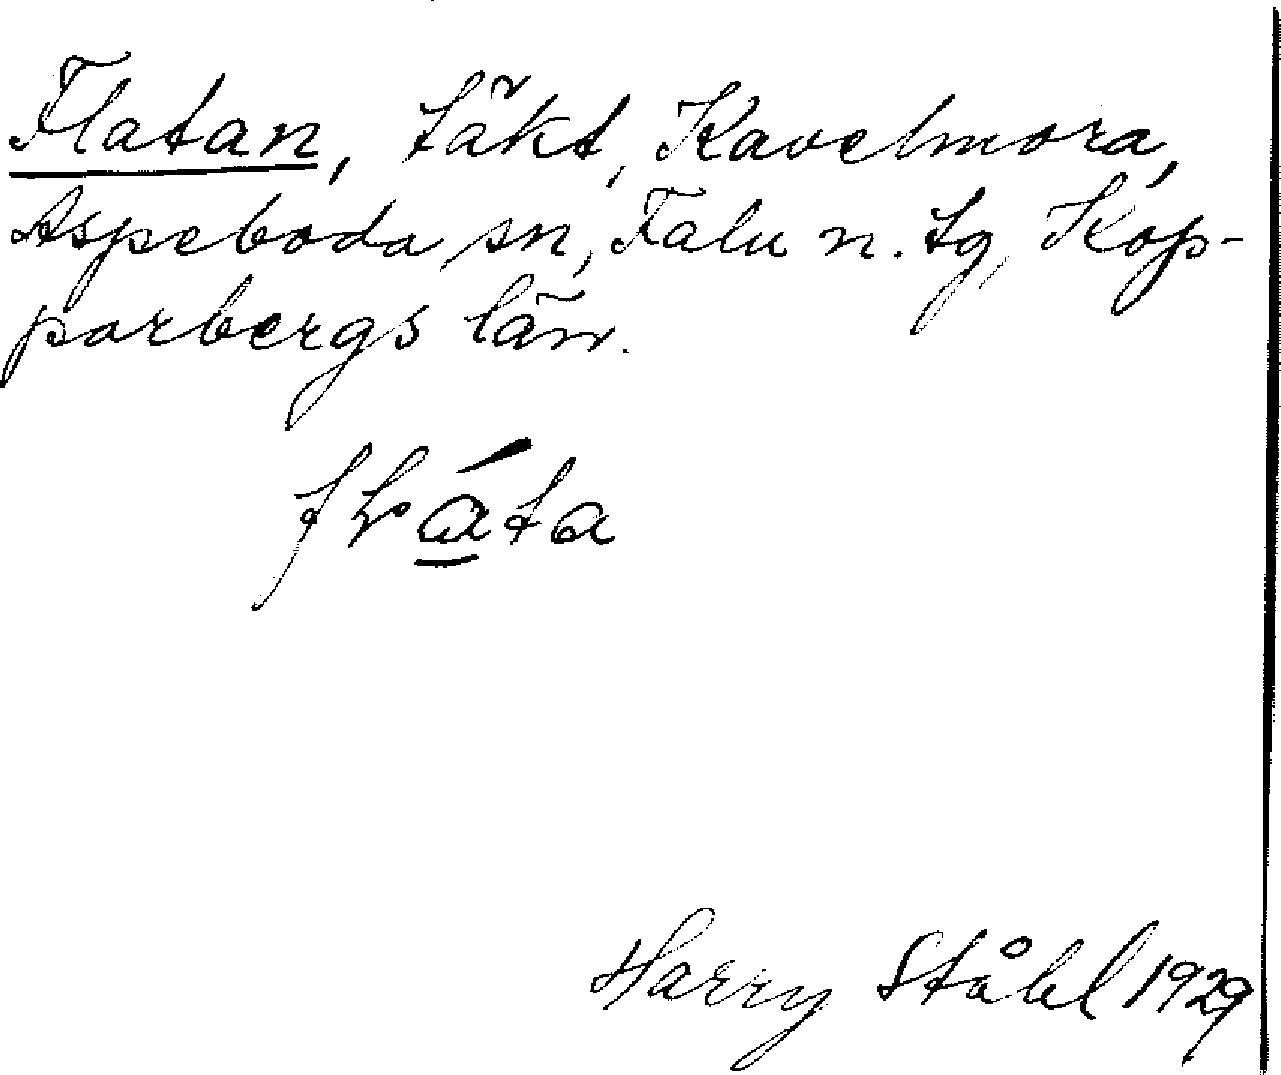 Flatan, täkt, Kavelmora,
Aspeboda sn, Falu n. tg, Kop-
parbergs län.
fláta
Harry Ståhl 1929